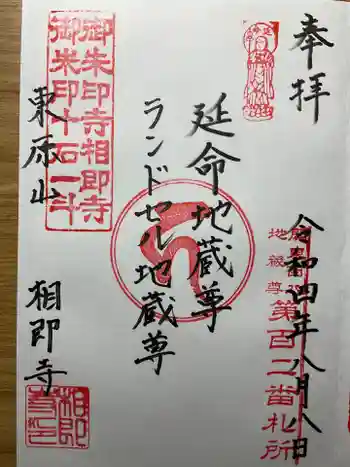 奉拝
令和四年八月八日
第百二番札所
延命地蔵尊
ランドセル地蔵尊
御朱印寺相即寺
御朱印十石一斗
東原山
相即寺
相即
寺印